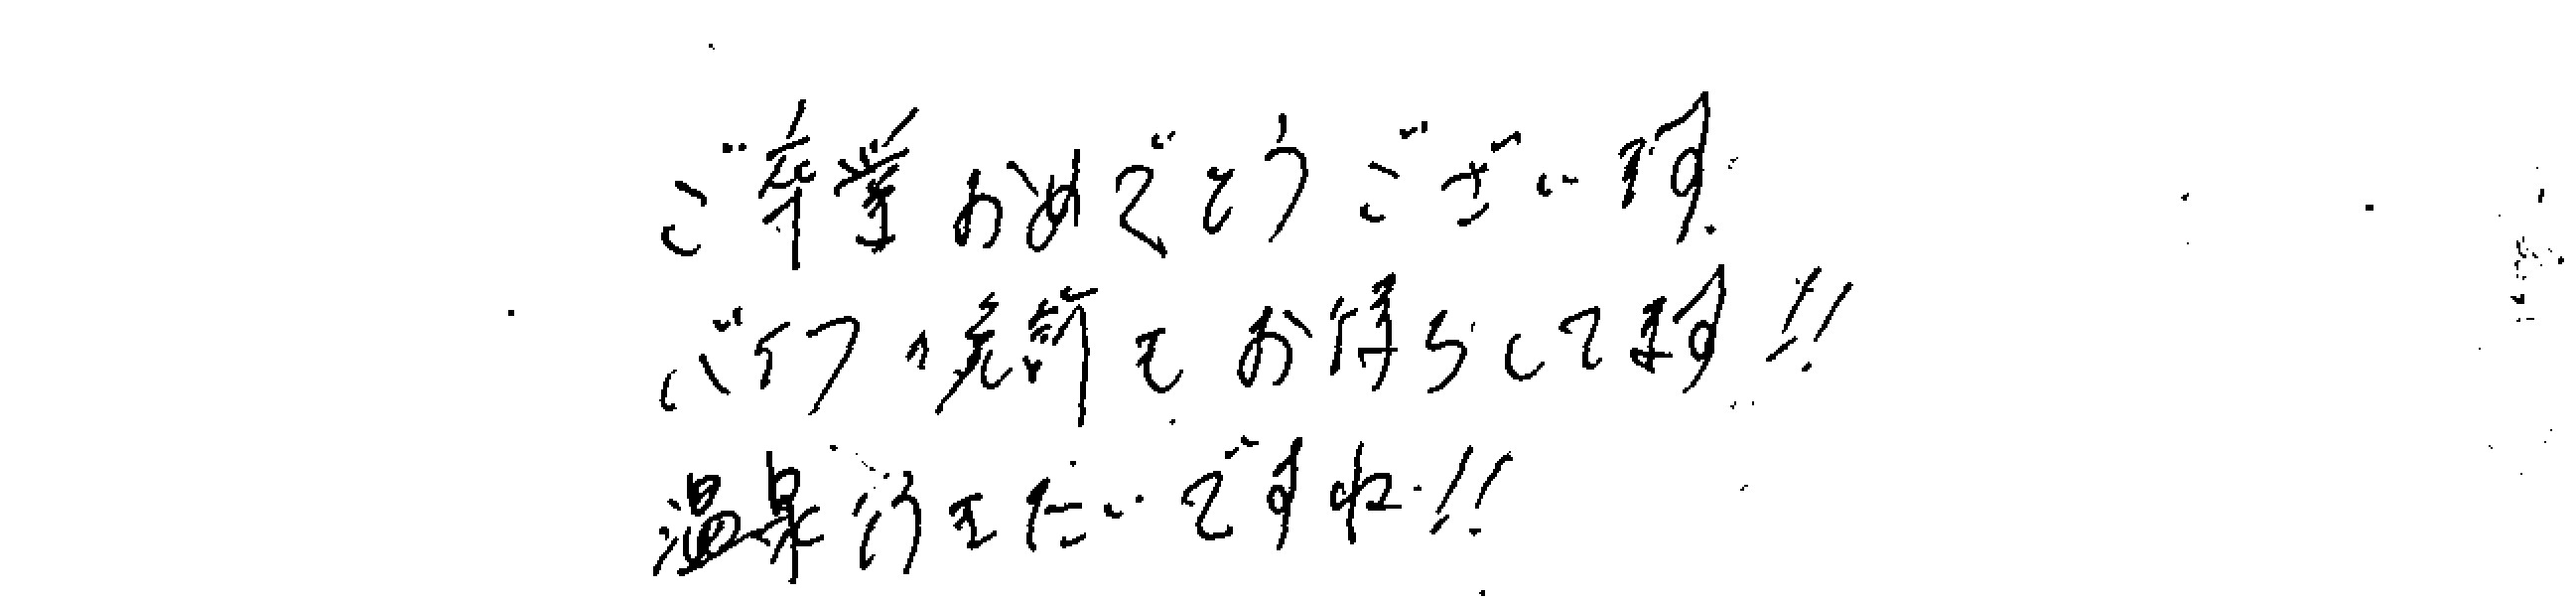 ご卒業おめでとうございます.
バイクの免許もお待ちしてます!!
温泉行きたいですね!!